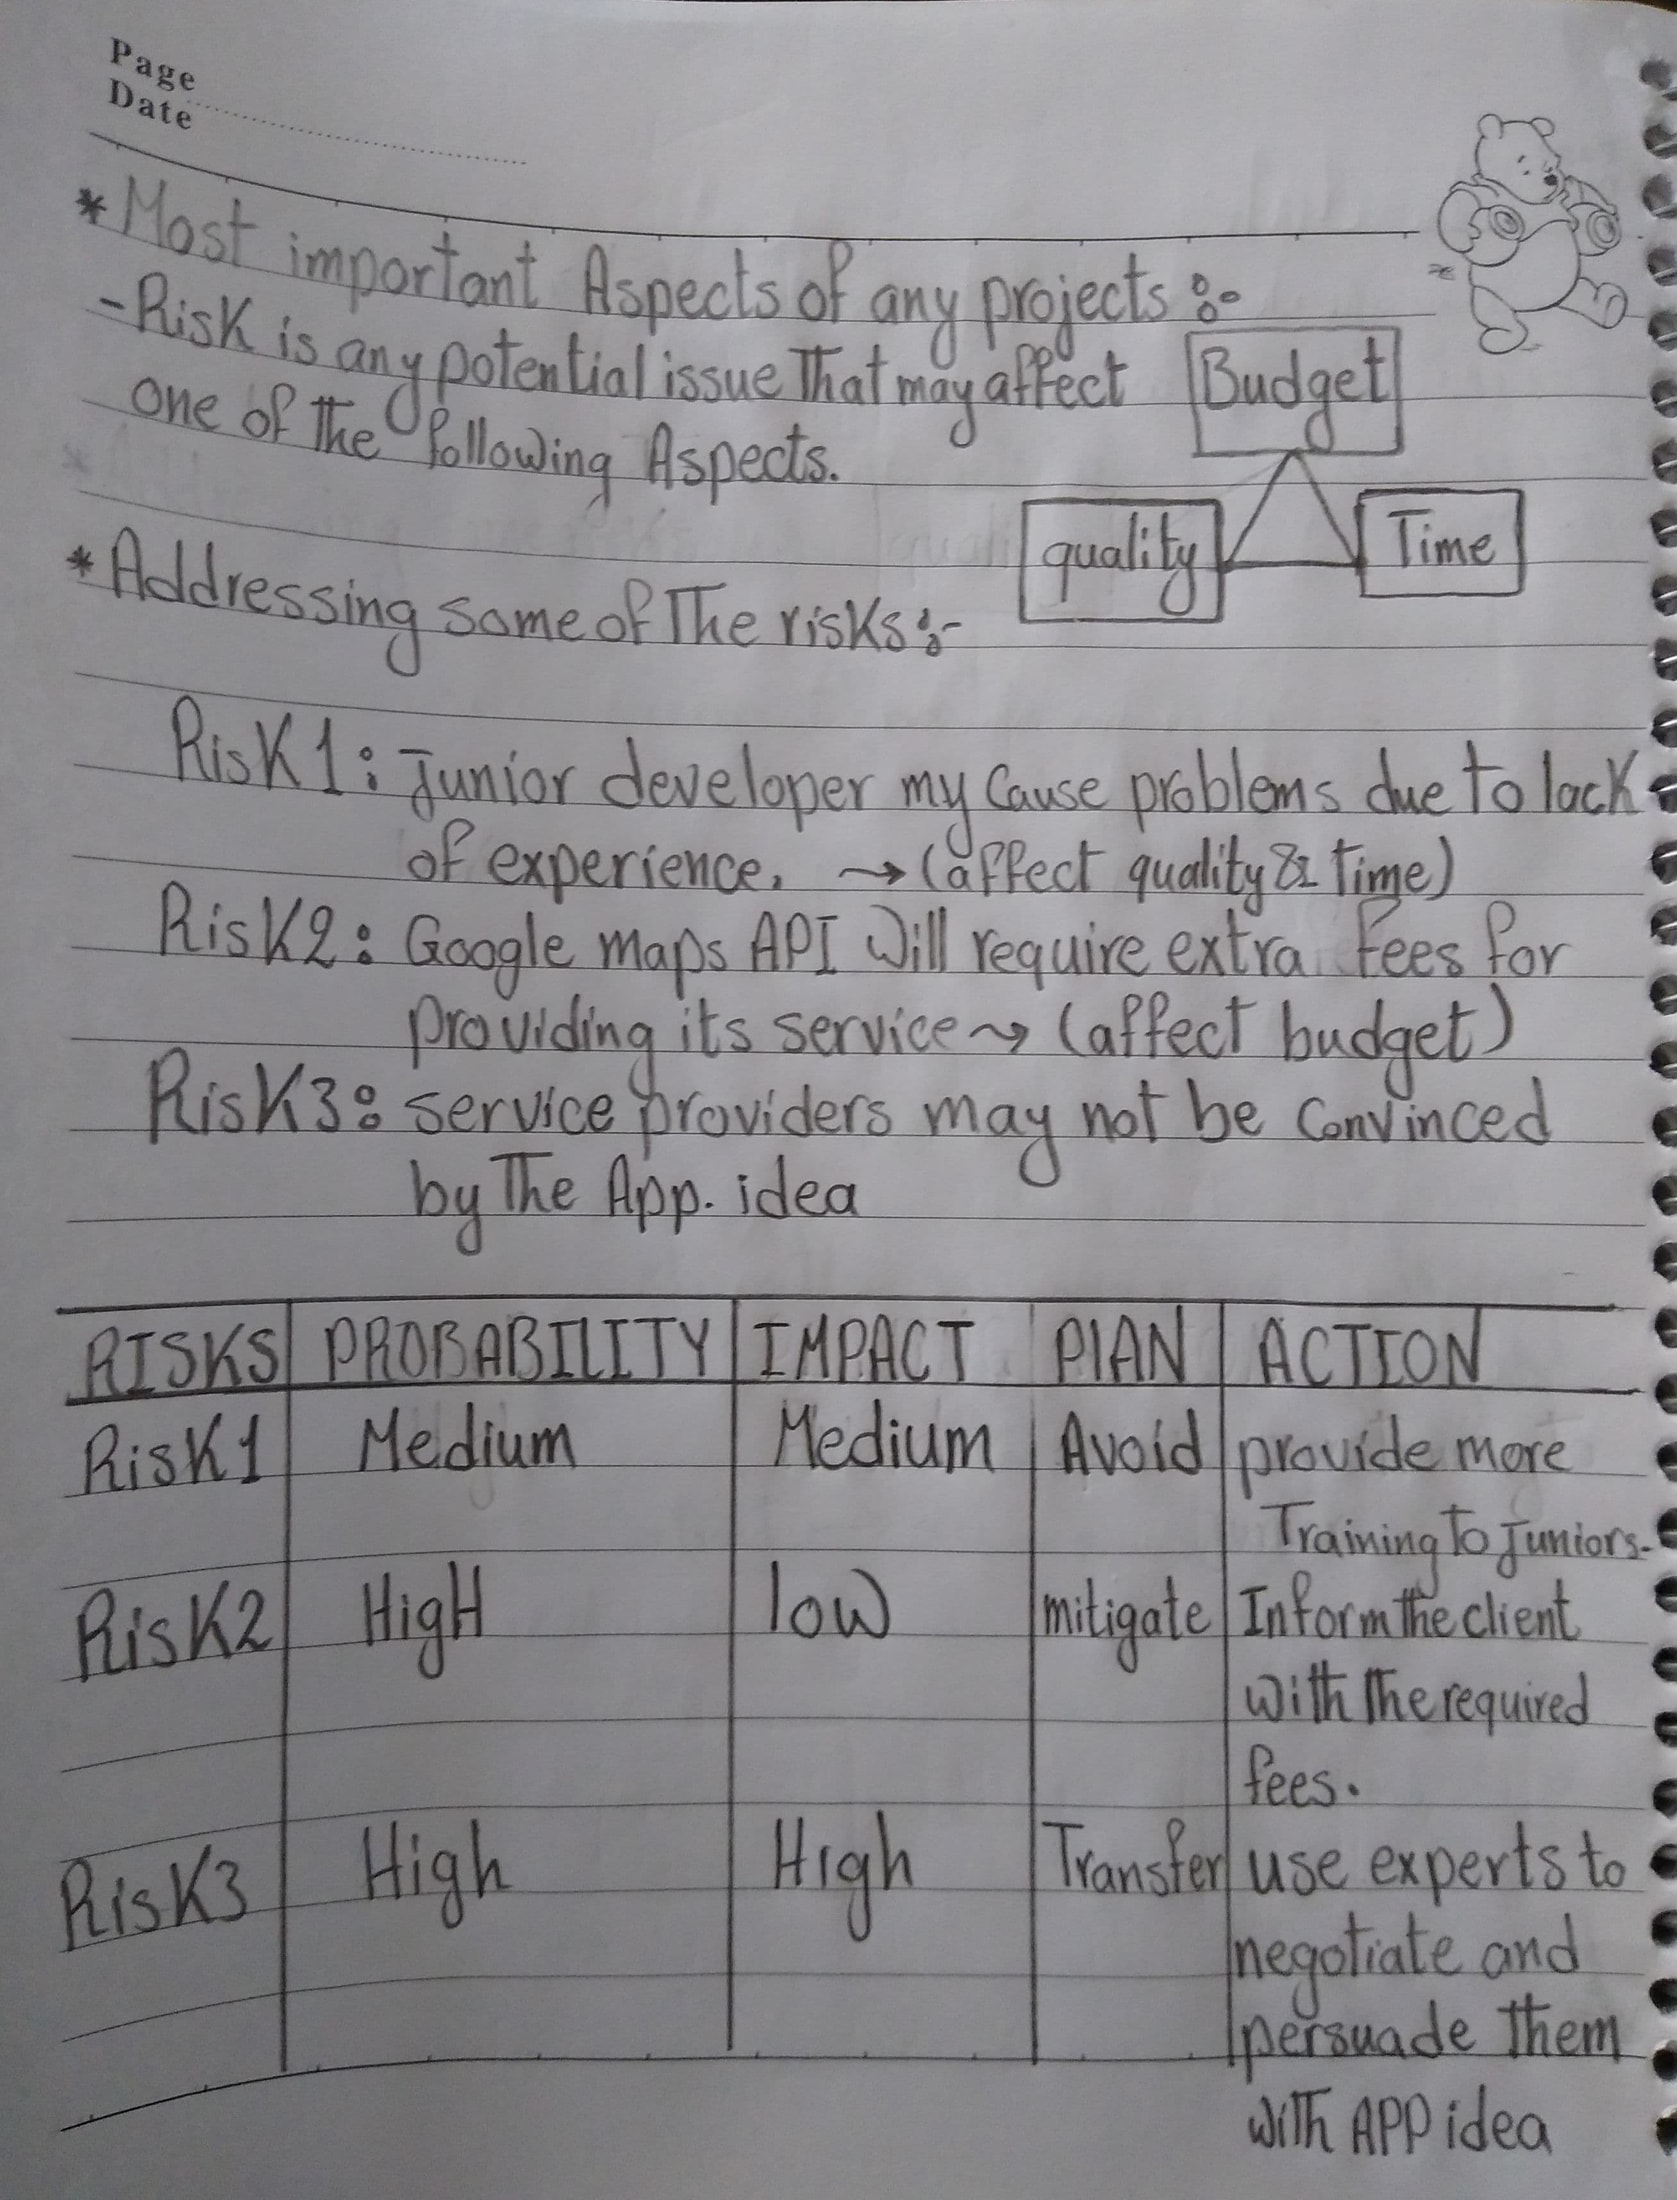 Page
Date
* Most important Aspects of any projects :-
- Risk is any potential issue That may affect
one of The following Aspects.
Budget
quality
Time
* Addressing some of The risks :-
Risk1: Junior developer my Cause problems due to lack
of experience. → (affect quality & time)
Risk2: Google maps API Will require extra fees for
providing its service → (affect budget)
Risk3: service providers may not be Convinced
by The App. idea
RISKS PROBABILITY IMPACT PlAN ACTION
Risk1 Medium Medium Avoid provide more
Training To Juniors.
Risk2 HigH low mitigate Inform The client
With The required
fees.
Risk3 High High Transfer use experts to
negotiate and
persuade Them
With APP idea